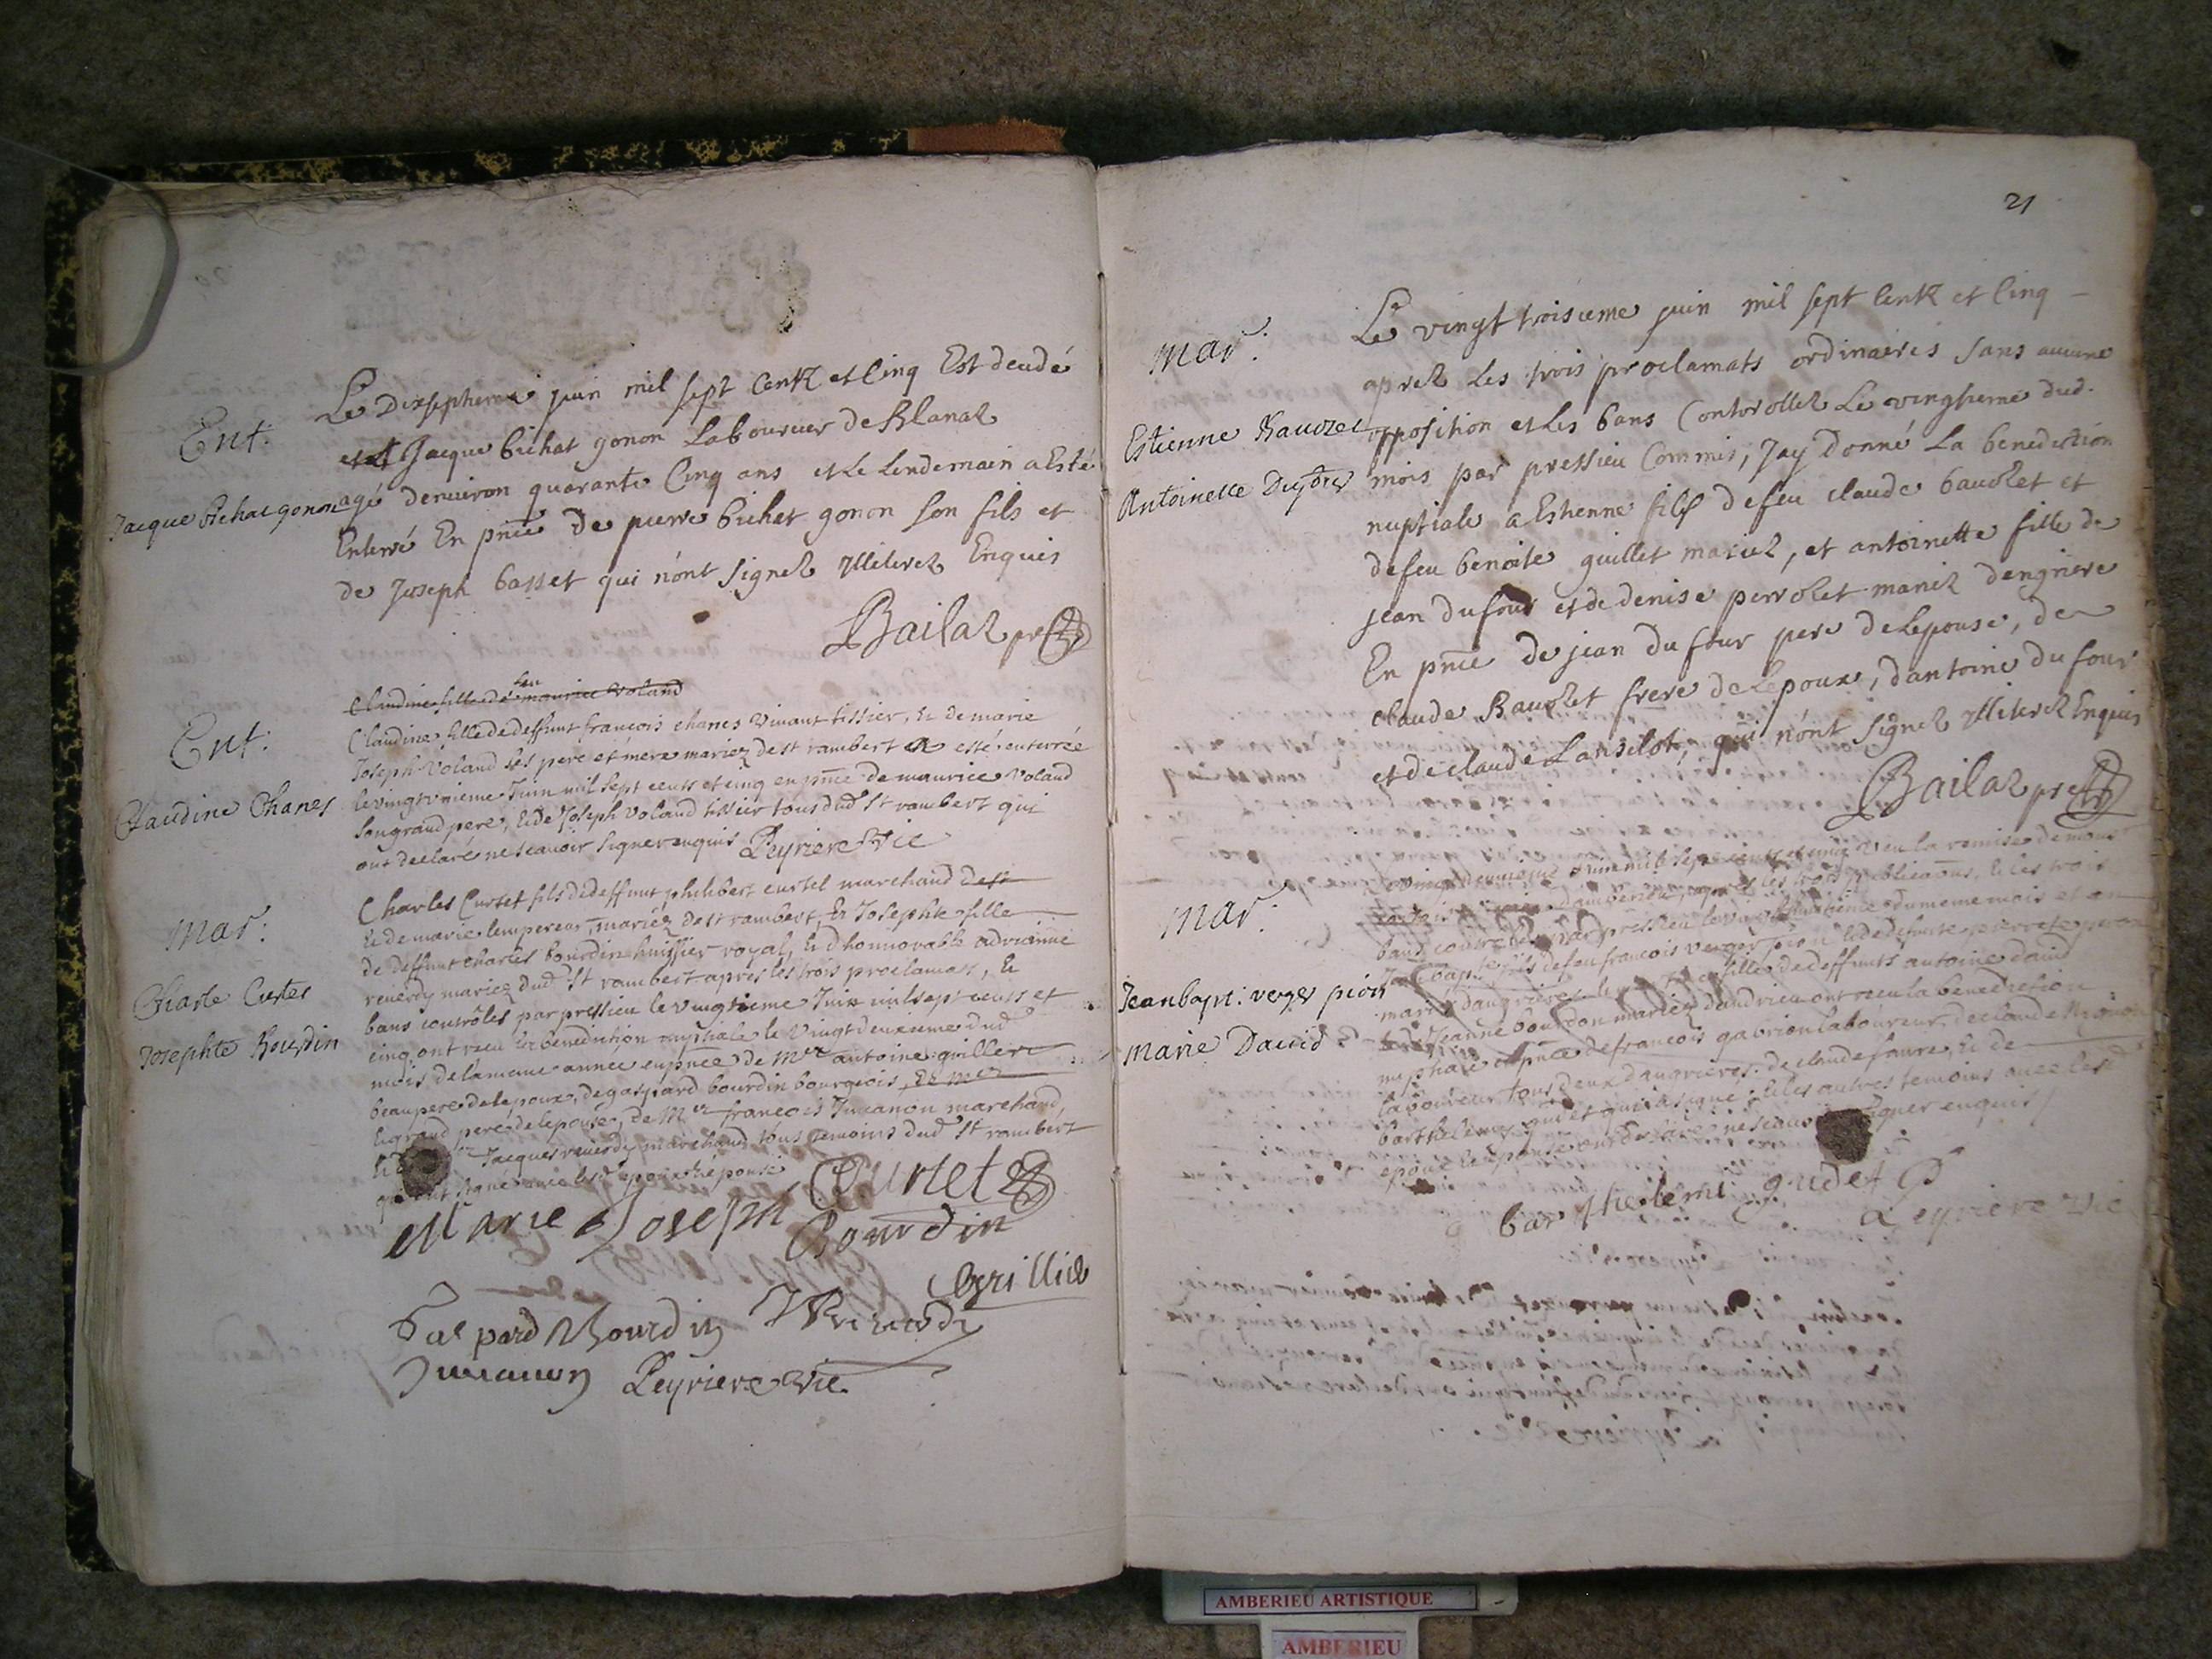 Ent:
Jacque bichat gonon
Le Dixseptieme juin mil sept Centz et Cinq Est decedé
Jacque bichat gonon Laboureur de blanaz
agé denuiron quarante Cinq ans et Le Lendemain a Esté
Enterré En pnce De pierre bichat gonon son fils et
de Joseph basset qui n'ont signez illiterez Enquis
Bailaz pre
Claudine fille de feu maurice voland
Ent:
Claudine Chanes
Claudine fille de deffunt francois chanes vivant tissier, & de marie
Joseph voland ses pere et mere mariez de st rambert a esté enterrée
le vingt unieme Juin mil sept cents et cinq en pnce de maurice voland
son grand pere, & de Joseph voland tissier tous dud st rambert qui
ont declaré ne scauoir signer enquis Peyriere vic
Mar:
Charle Curtet
Josephte Bourdin
Charles Curtet fils de deffunt philibert curtet marchand
& de marie lempereur, mariéz de st rambert, & Josephte fille
de deffunt charles bourdin huissier royal, & d honnorable adrianne
reuerdy mariez dud st rambert apres les trois proclamats, &
bans contrôles par pressieu le vingtieme Juin mil sept cents et
cinq ont receu la benediction nuptiale le vingt deuxieme dud
mois de la meme année en pnce de Mre antoine grillier
beaupere de lepoux, de gaspard bourdin bourgeois,
& grand pere de lepouse, de Mre francois Juuanon marchand,
Jacques reuerdy marchand tous temoins dud st rambert
qui ont signé auec lesd epoux & épouse
Curtet
Marie Joseph Bourdin
Grillier
Gaspard Bourdin JReuerdy
Juuanon Peyriere vic
21
Mar:
Estienne Bauozet
Antoinette Dufour
Le vingt troisieme juin mil sept Centz et Cinq
aprez Les trois proclamats ordinaires sans aucune
opposition et Les bans Controllez Le vingtieme dud.
mois par pressieu Commis, Jay Donné La benediction
nuptiale a Estienne fils defeu claude bauozet et
defeu benoite guillet mariez, et antoinette fille de
jean dufour et de denise perrozet mariez dengriere
En pnce de jean du four pere de Lepouse, de
claude Bauozet frere de Lepoux, dantoine du four
et de claude Lansilot, qui n'ont signez illiterez Enquis
Bailaz pre
Mar:
Jean bapt: verger pion
Marie Dauid
vingt deuxieme Juin mil sept cents et cinq veu la remise de monsr
damberieu, apres les trois publicaons, & les trois
bans par pressieu du meme mois et an
Jn bapte fils de feu francois verger pion & de defunte pierrete
mariez daugrieres, & fille de deffunts antoine dauid
& de Jeanne bourdon mariez dandrieu ont receu la benediction
nuptiale en pnce de francois gabrion laboureur, de claude
laboureur tous deux daugrieres, de claude faure, & de
barthelemy gudet qui a signé, & les autres temoins auec lesd
epoux & epouse ont declaré ne scauoir signer enquis
barthelemi gudet
Peyriere vic
AMBERIEU ARTISTIQUE
AMBERIEU